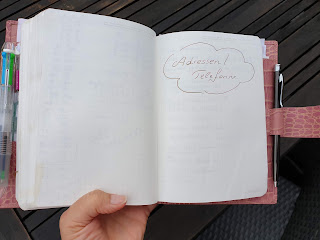 Adressen/
Telefonnr